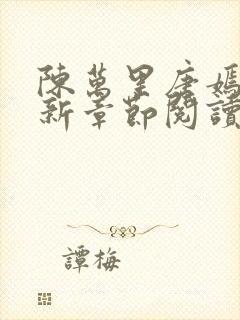 陳萬里唐嫣
新章節閱讀
譚梅